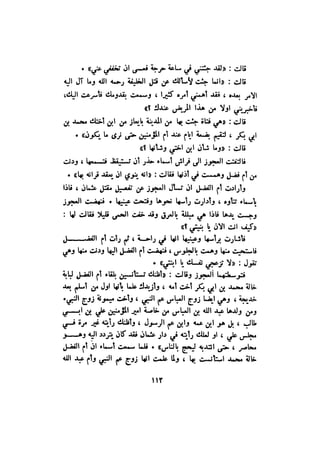 قالت : «لقد جئتني في ساعة حرجة فعسى ان تخففي عني» •
قالت : «انما جئت لأسألك عن قتل الخليفة رحمه الله وما آل اليه
الامر بعده ، فقد أهمني أمره كثيرا ، وسمعت بقدومك فأسرعت اليك،
فأخبريني اولا من هذا المريض عندك ؟»
قالت : «هي فتاة جئت بها من المدينة بايعاز من ابن أختك محمد بن
ابي بكر ، لتقيم بضعة ايام عند أم المؤمنين حتى نرى ما يكون» •
قالت : «وما شأن ابن اختي وشأنها ؟»
فالتفتت العجوز الى فراش أسماء حذر أن تستيقظ فتسمعها ، ودنت
من أم فضل وهمست في أذنها فقالت : «انه ينوي ان يعقد قرانه بها» •
وأرادت أم الفضل ان تسأل العجوز عن تفصيل مقتل عثمان ، فاذا
بأسماء تتأوه ، وأدارت رأسها نحوها وفتحت عينيها • فنهضت العجوز
وجست يدها فاذا هي مبللة بالعرق وقد خفت الحمى قليلا فقالت لها :
«كيف انت الآن يا بنيتي ؟»
فأشارت برأسها وعينيها انها في راحة ، ثم رأت أم الفضل
فاستحيت منها وهمت بالجلوس ، فنهضت أم الفضل اليها ودنت منها وهي
تقول : «لا تزعجي نفسك يا ابنتي» •
فتوسطتهما العجوز وقالت : «أظنك تستأنسين بلقاء أم الفضل لبابة
خالة محمد بن ابي بكر أخت أمه ، وأزيدك علما بأنها اول من أسلم بعد
خديجة ، وهي ايضا زوج العباس عم النبي ، وأخت ميمونة زوج النبي•
ومن ولدها عبد الله بن العباس من خاصة امير المؤمنين علي بن ابي
طالب ، بل هو ابن عمه وابن عم الرسول ، وأظنك رأيته غير مرة في
مجلس علي ، او لعلك رأيته في دار عثمان فقد كان يتردد اليه وهو
محاصر ، حتى انتدبه ليحج بالناس» • فلما سمعت أسماء ان أم الفضل
خالة محمد استأنست بها ، ولما علمت انها زوج عم النبي وأم عبد الله
١١٣